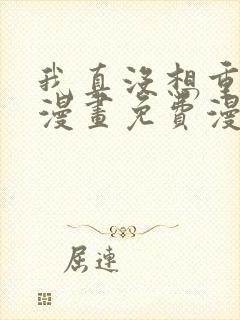 我真没想重
漫畫免費漫
屈連